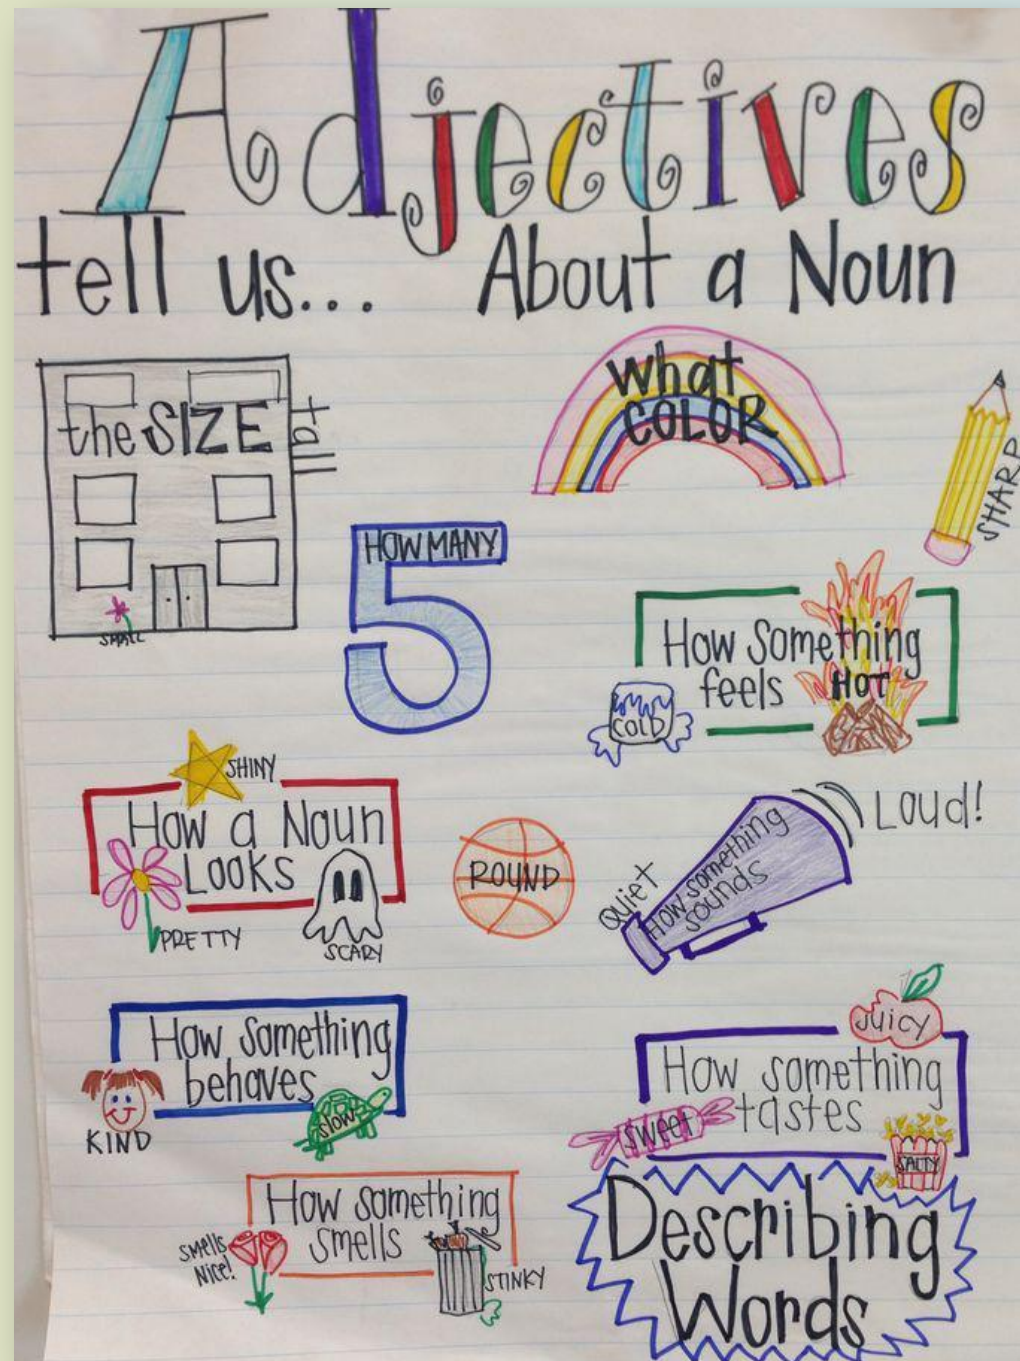 Adjectives
tell us... About a Noun
the SIZE
tall
SMALL
What
COLOR
SHARP
HOW MANY
5
How Something
feels
HOT
COLD
SHINY
How a Noun
LOOKS
PRETTY
SCARY
ROUND
Quiet
How something
sounds
Loud!
How something
behaves
KIND
slow
Juicy
How something
tastes
SWEET
SALTY
How something
smells
smells
Nice!
STINKY
Describing
Words